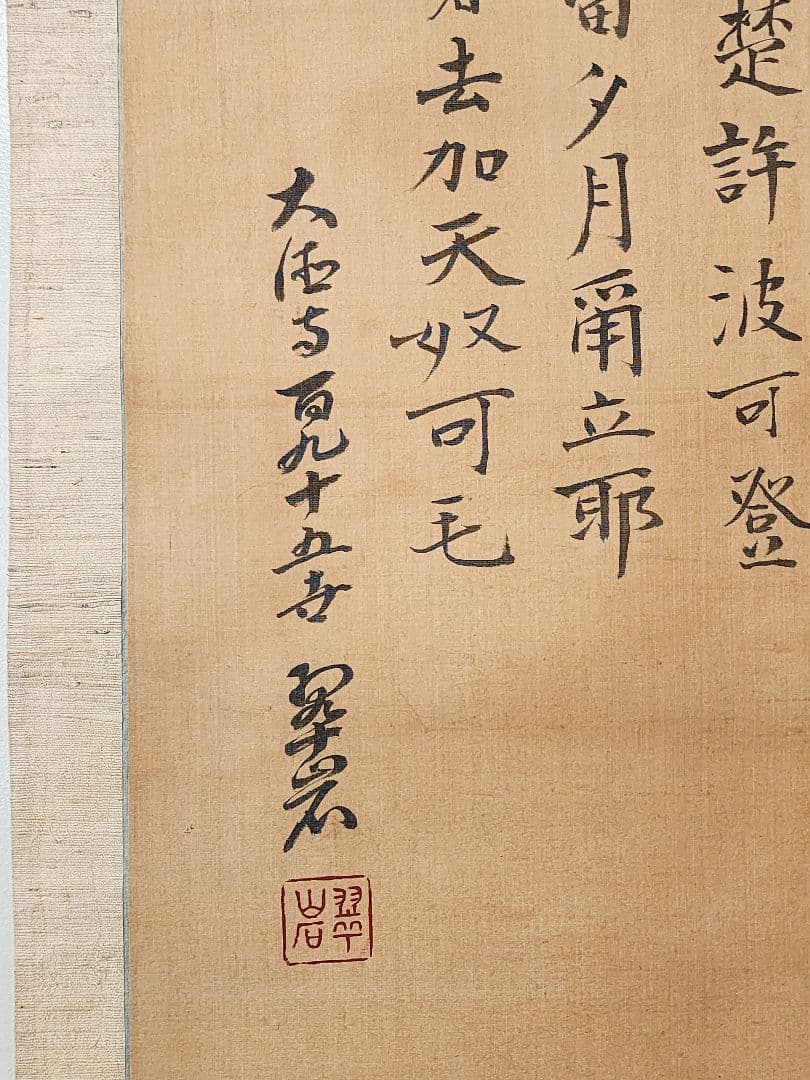 楚許波可登
夕月爾立耶
去加天奴可毛
大徳寺百九十五世 翠岩
翠岩